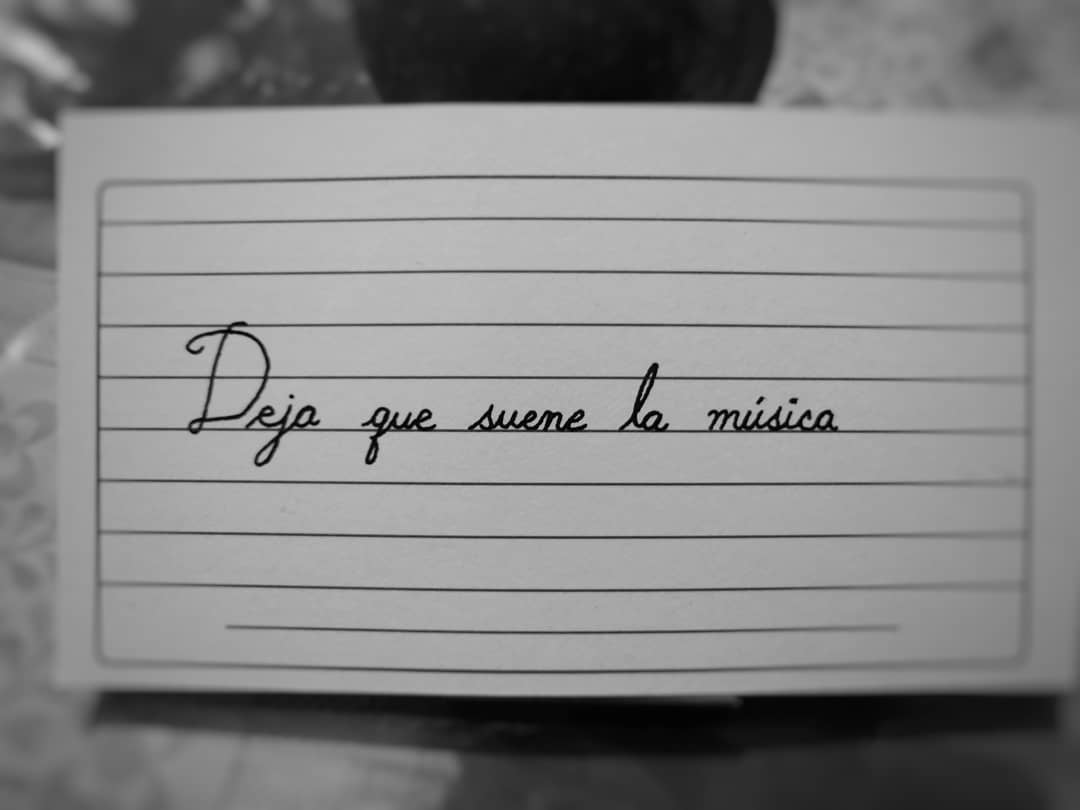 Deja que suene la música